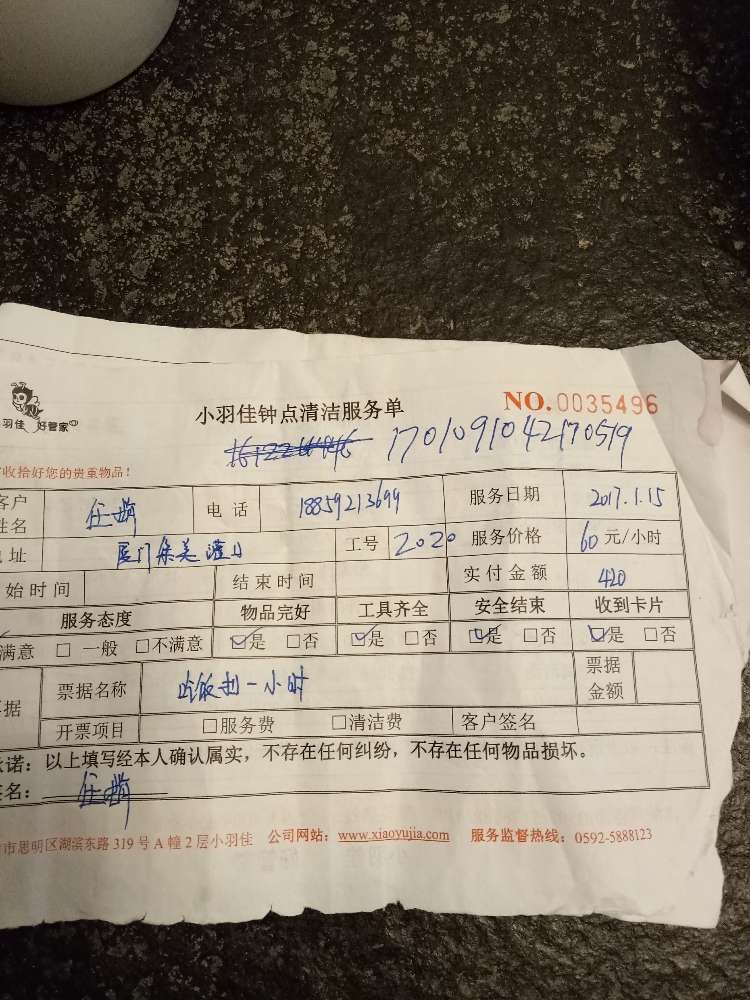 小羽佳钟点清洁服务单 NO.0035496
羽佳 好管家
1701091042170519
收拾好您的贵重物品!
客户姓名 任 电话 18859213699 服务日期 2017.1.15
址 厦门集美灌口 工号 2020 服务价格 60元/小时
始时间 结束时间 实付金额 420
服务态度 物品完好 工具齐全 安全结束 收到卡片
满意 □ 一般 □不满意 ☑是 □否 ☑是 □否 ☑是 □否 ☑是 □否
据 票据名称 吃饭扣一小时 票据金额
开票项目 □服务费 □清洁费 客户签名
诺:以上填写经本人确认属实,不存在任何纠纷,不存在任何物品损坏。
名: 任
市思明区湖滨东路319号A幢2层小羽佳 公司网站:www.xiaoyujia.com 服务监督热线:0592-5888123